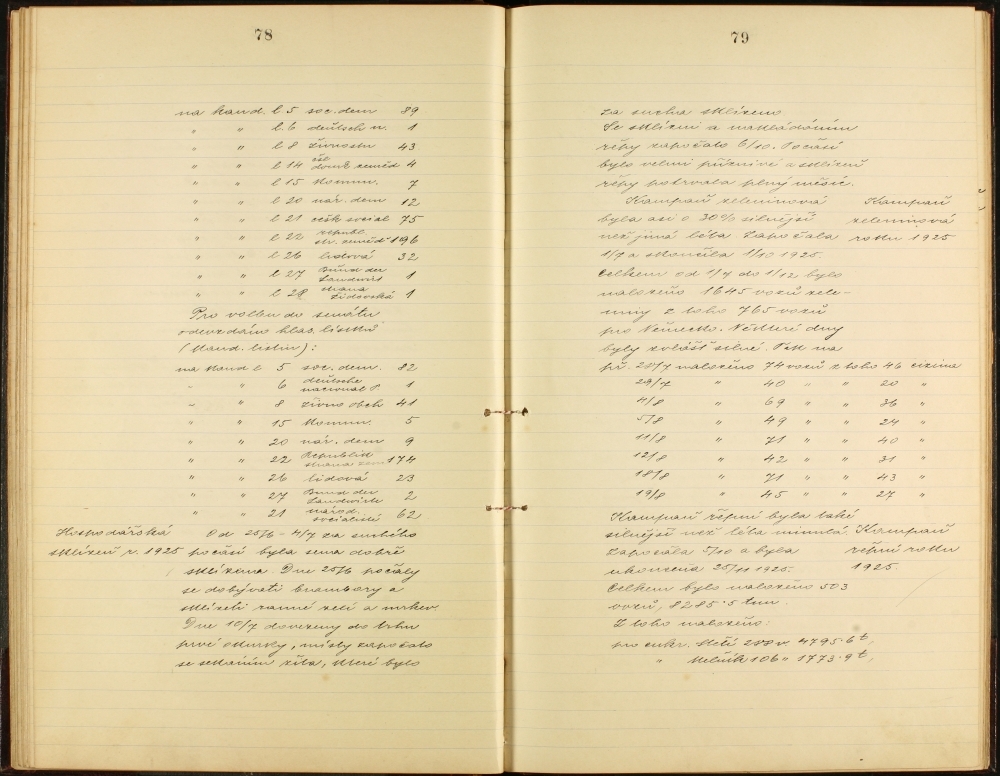 78
na kand. l. 5 soc. dem 89
" " l. 6 deutsch n. 1
" " l 8 živnostn 43
" " l 14 čsl domk zeměd 4
" " l 15 komun. 7
" " l 20 nár. dem 12
" " l 21 česk social 75
" " l 22 republ. str. zeměd 196
" " l 26 lidová 32
" " l 27 Bund der Landwirt 1
" " l 28 strana židovská 1
Pro volbu do senátu
odevzdáno hlas. lístků
(kand. listin):
na kand l 5 soc. dem. 82
" 6 deutsche nacional P 1
" 8 živno obch 41
" " 15 komun. 5
" " 20 nár. dem 9
" " 22 Republik strana zem 174
" " 26 lidová 23
" " 27 Bund der Landwirte 2
" " 21 národ. socialisté 62
Hospodářská
sklizeň r. 1925
Od 25/6 - 4/7 za suchého
počasí byla sena dobře
sklizena. Dne 25/6 počaly
se dobývati brambory a
sklízeti ranné zelí a mrkev.
Dne 10/7 dovezeny do trhu
prvé okurky, místy započato
se sekáním žita, které bylo
79
za sucha sklizeno
Se sklizní a nakládáním
řepy započato 6/10. Počasí
bylo velmi příznivé a sklizeň
řepy potrvala plný měsíc.
Kampaň zeleninová
byla asi o 30% silnější
než jiná léta. Započala
1/7 a skončila 1/12 1925.
Kampaň
zeleninová
roku 1925
Celkem od 1/7 do 1/12 bylo
naloženo 1645 vozů zele-
niny z toho 765 vozů
pro Německo. Některé dny
byly zvlášť silné. Tak na
př. 28/7 naloženo 74 vozů z toho 46 cizina
29/7 " 40 " " 20 "
4/8 " 69 " " 36 "
5/8 " 49 " " 24 "
11/8 " 71 " " 40 "
12/8 " 42 " " 31 "
18/8 " 71 " " 43 "
19/8 " 45 " " 27 "
Kampaň řepní byla také
silnější než léta minulá.
Započala 5/10 a byla
ukončena 25/11 1925.
Kampaň
řepní roku
1925.
Celkem bylo naloženo 503
vozů, 8285·5 tun.
Z toho naloženo:
pro cukr. 4795·6 t,
" Mělník 106 " 1773·9 t,